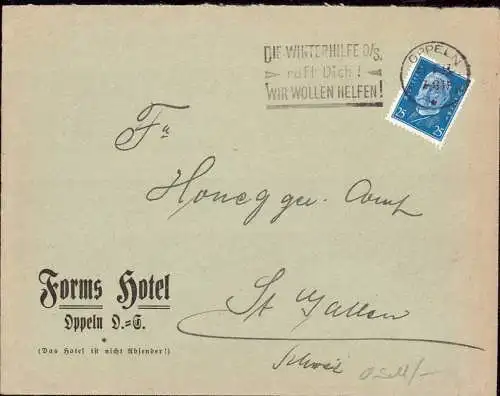 DIE WINTERHILFE O/S.
ruft Dich!
WIR WOLLEN HELFEN!
OPPELN
25 25
Fa
Honegger Comp
Forms Hotel
Oppeln O.=S.
(Das Hotel ist nicht Absender!)
St Gallen
Schweiz